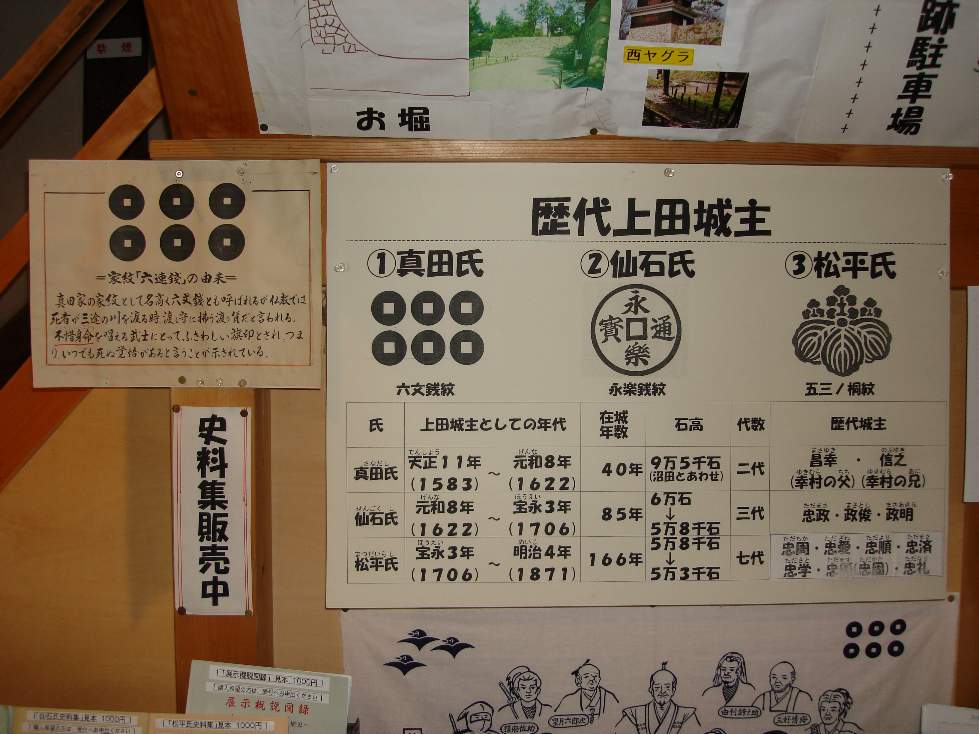 禁煙
お堀
西ヤグラ
跡駐車場
=家紋「六連銭」の由来=
真田家の家紋として名高く六文銭とも呼ばれるが仏教では
死者が三途の川を渡る時、渡し守に払う渡し賃だと言われる。
不惜身命を唱える武士にとって、ふさわしい旗印とされ、つま
りいつでも死ぬ覚悟があると言うことが示されている。
史料集販売中
歴代上田城主
①真田氏
②仙石氏
③松平氏
永樂通寳
六文銭紋
永楽銭紋
五三ノ桐紋
氏 上田城主としての年代 在城年数 石高 代数 歴代城主
真田氏 天正11年(1583) ~ 元和8年(1622) 40年 9万5千石(沼田とあわせ) 二代 昌幸(幸村の父)・信之(幸村の兄)
仙石氏 元和8年(1622) ~ 宝永3年(1706) 85年 6万石→5万8千石 三代 忠政・政俊・政明
松平氏 宝永3年(1706) ~ 明治4年(1871) 166年 5万8千石→5万3千石 七代 忠周・忠愛・忠順・忠済
忠学・忠(忠固)・忠礼
「展示概説図録」見本 1000円
展示概説図録
「仙石氏史料集」見本 1000円
「松平氏史料集」見本 1000円
望月六郎
三好清海